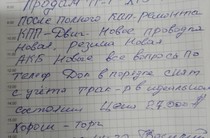 Продам Т-
после полного кап-ремонта
КПП-Двиг-Новое проводка
новая, резина Новая
АКБ Новое все вопросы по
телеф Док в порядке снят
с учёта трак-р в идеальном
состоянии Цена
Хорош-Торг